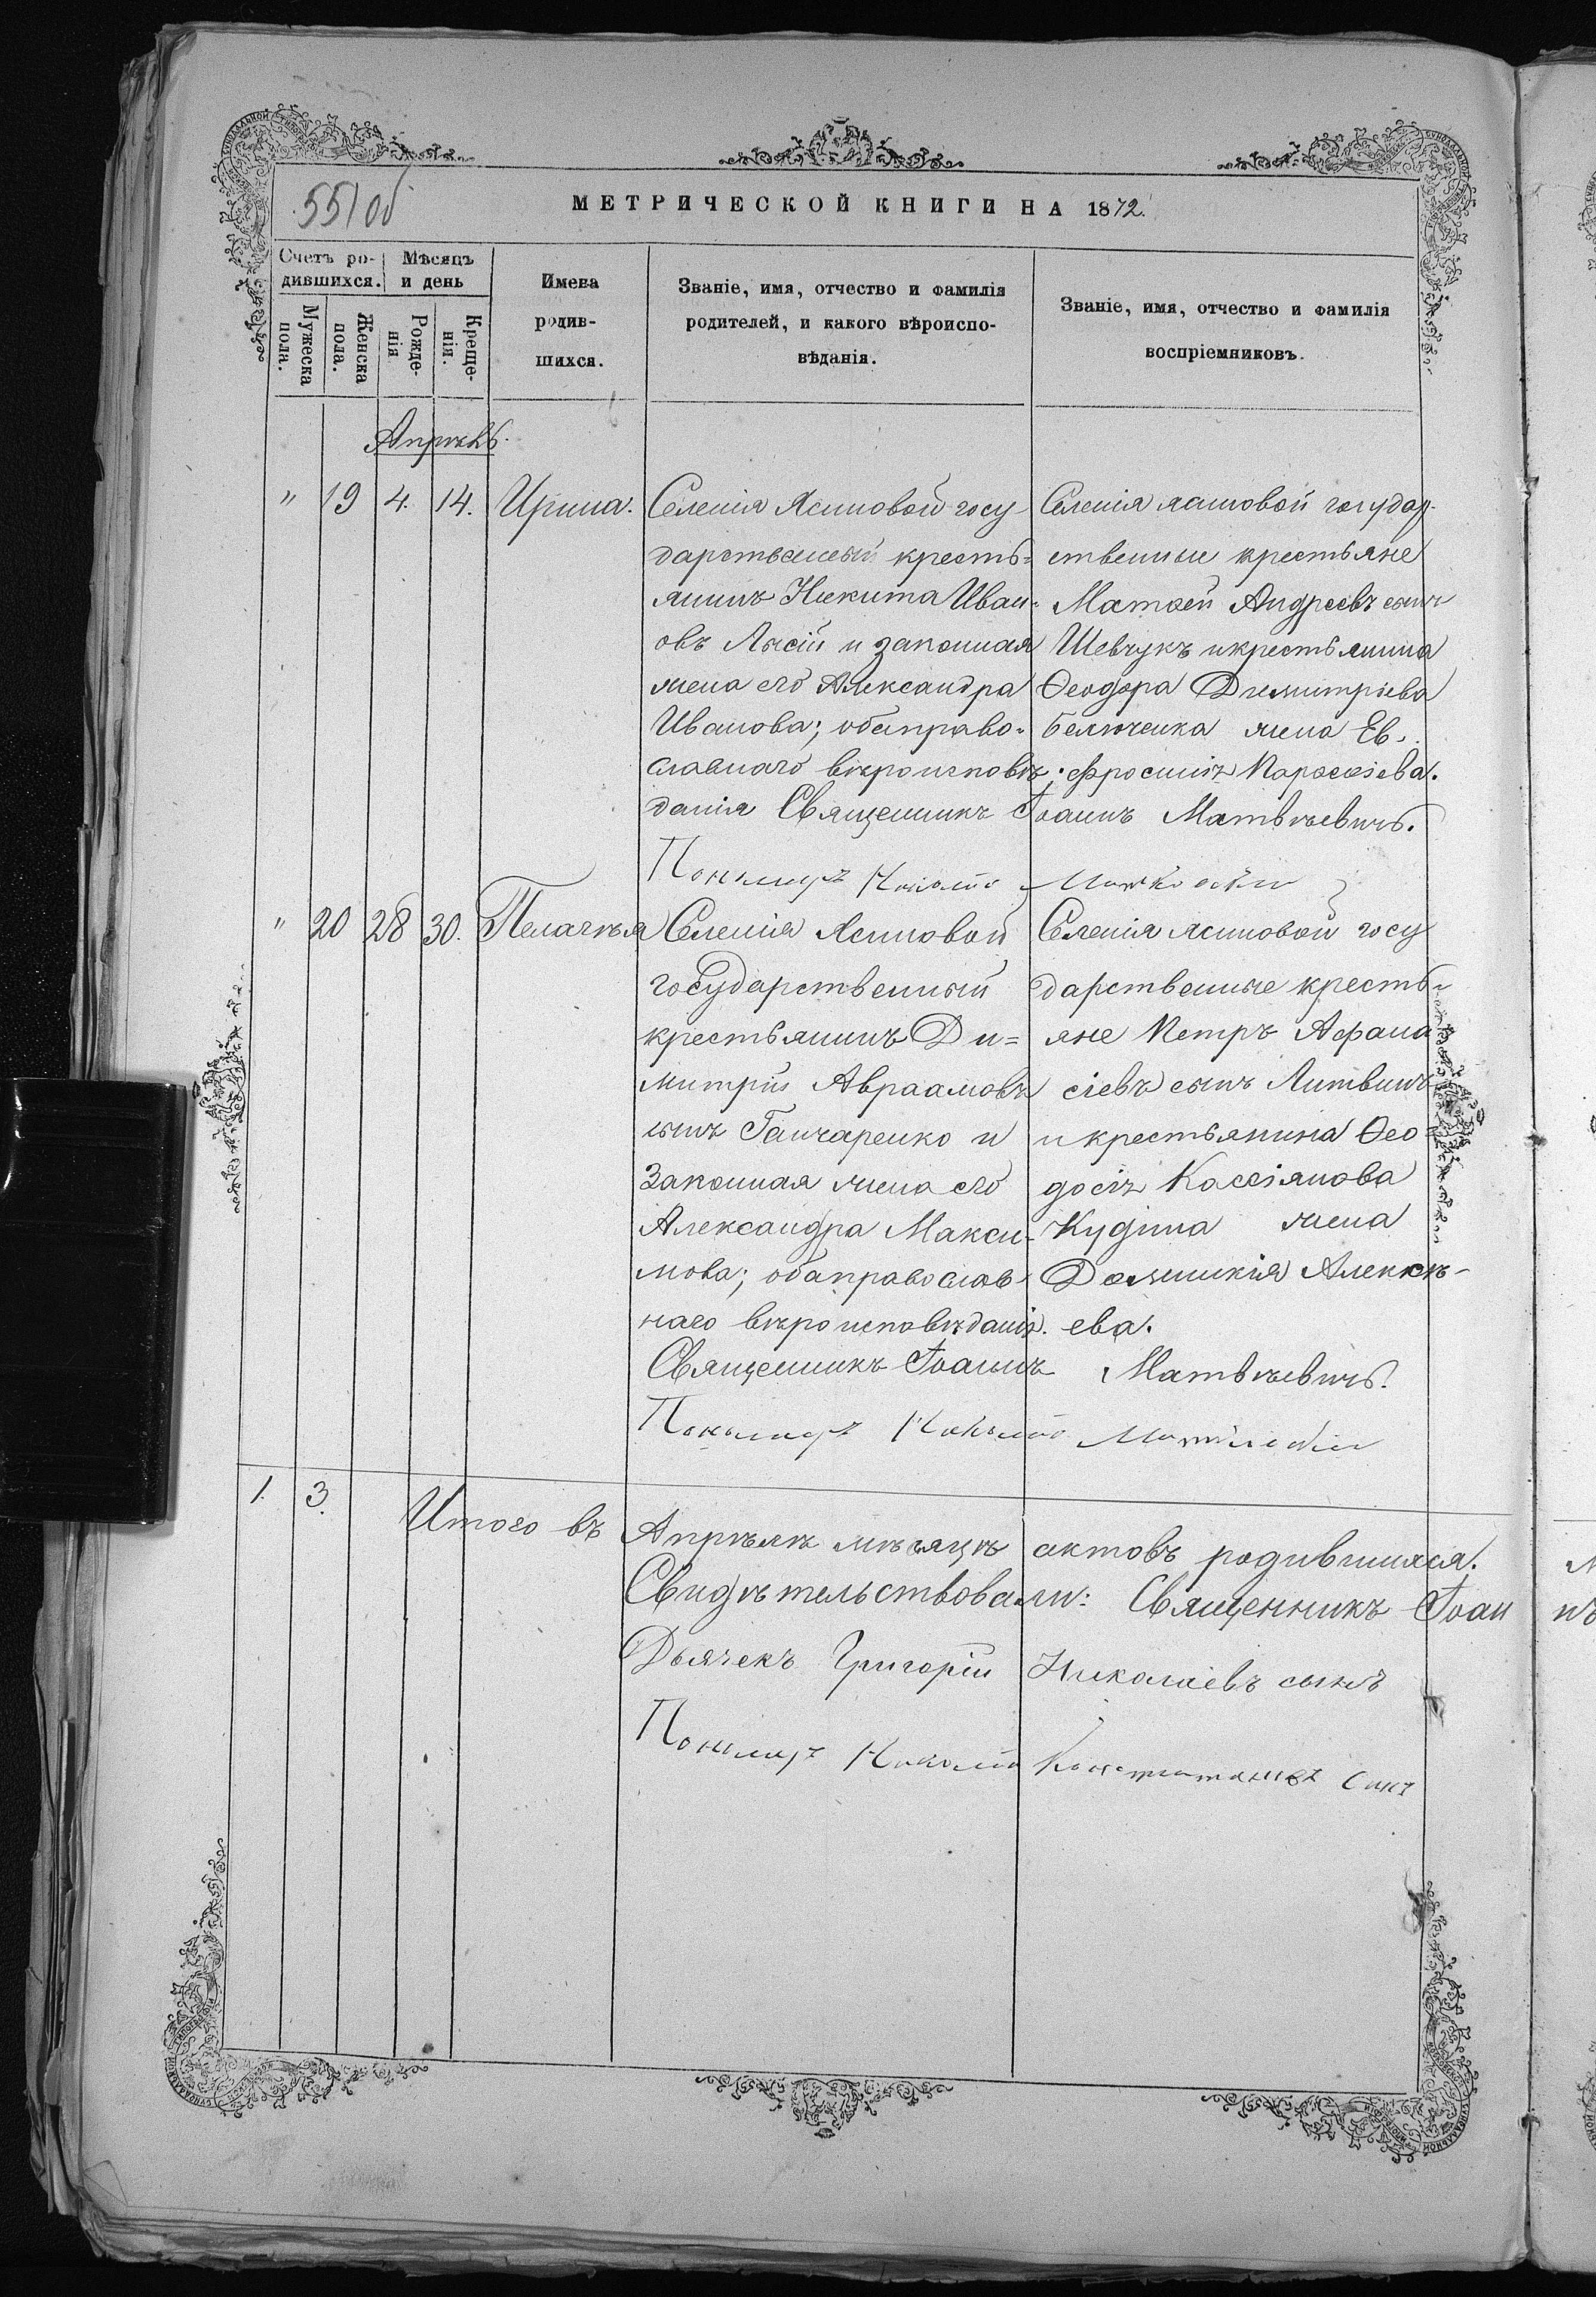 551 об
МЕТРИЧЕСКОЙ КНИГИ НА 1872.
Счетъ ро-
дившихся.
Мѣсяцъ
и день
Мужеска
пола.
Женска
пола.
Рожде-
нія
Креще-
нія.
Имена
родив-
шихся.
Званіе, имя, отчество и фамилія
родителей, и какого вѣроиспо-
вѣданія.
Званіе, имя, отчество и фамилія
воспріемниковъ.
Апрѣль.
" 19 4. 14. Ирина.
Селенія Ясиновой госу
дарственный кресть=
янинъ Никита Иван-
овъ Лысій и законная
жена его Александра
Иванова; оба право-
славнаго вѣроисповѣ-
данія Священникъ Іоаннъ Матвѣевичъ.
Селенія ясиновой государ-
ственные крестьяне
Матвей Андреевъ сынъ
Шевчукъ и крестьянина
Ѳеодора Димитріева
белюченка жена Ев-
фросинія Параскіева.
Пономарь Николай
" 20 28 30. Пелагѣя
Селенія Ясиновой
государственный
крестьянинъ Ди=
митрій Авраамовъ
сынъ Ганчаренко и
Законная жена его
Александра Макси-
мова; оба православ-
наго вѣроисповѣданія.
Священникъ Іоаннъ Матвѣевичъ.
Селенія ясиновой госу
дарственные кресть-
яне Петръ Афана
сіевъ сынъ Литвинъ
и крестьянина Ѳео-
досія Кассіянова
Кудина жена
Домникія Алексѣ-
ева.
Пономарь Николай
1. 3. Итого въ Апрѣлѣ мѣсяцѣ актовъ родившихся.
Свидѣтельствовали: Священникъ Іоан
Дьячекъ Григорій Николаевъ сынъ
Пономарь Николай Константиновъ сынъ